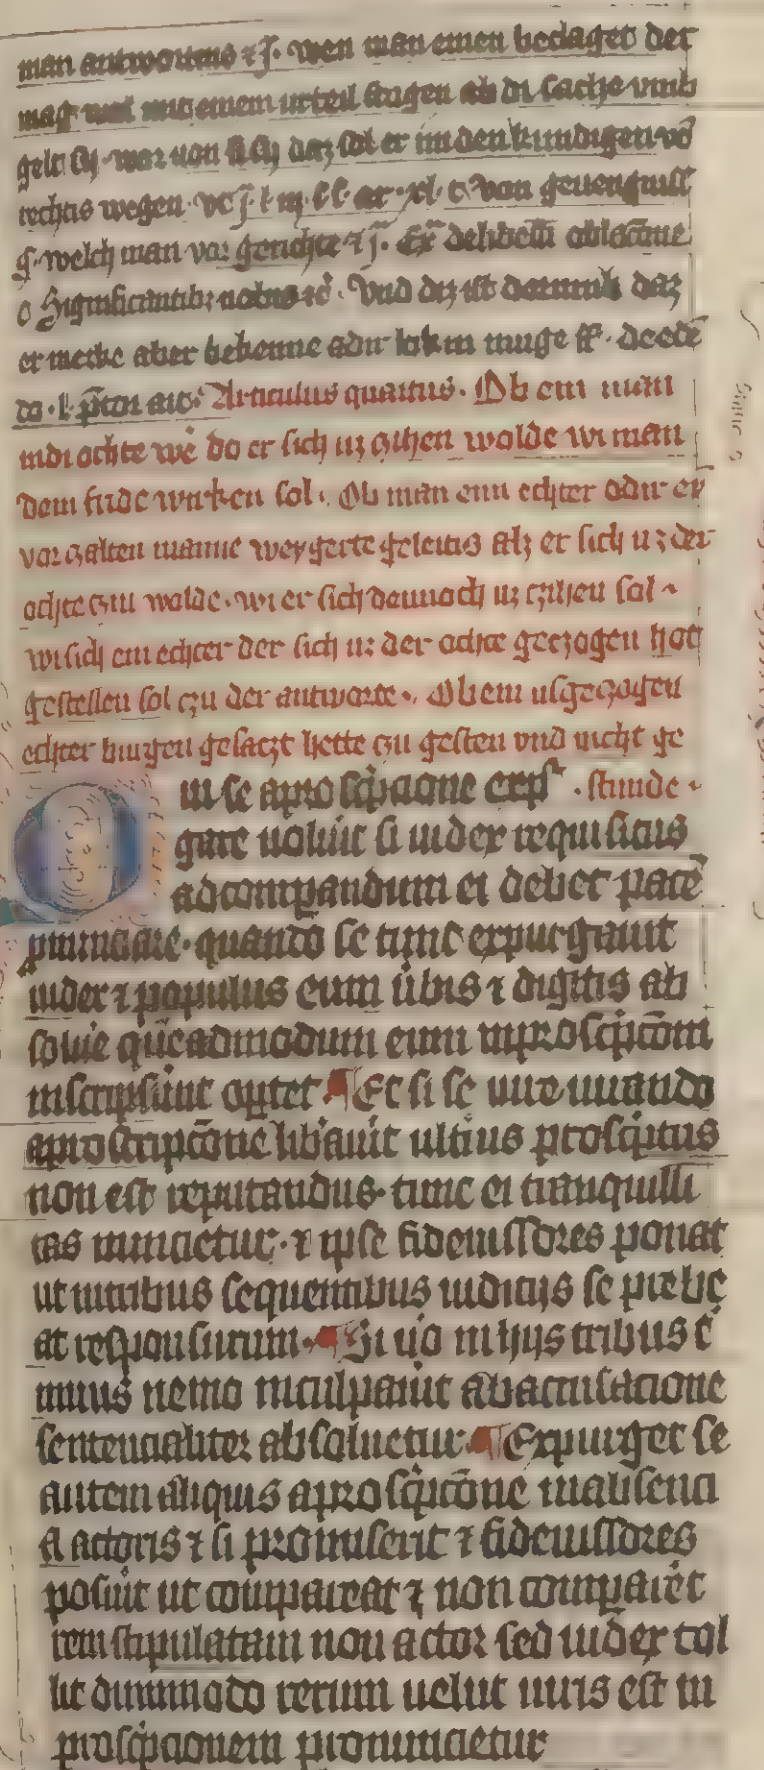 man antwortens ⁊ j̄. wen man einen beclaget der
mag mit einem urteil fragen ab di sache vmb
gelt sy. war von si sy daz sol er im den kundigen vō
rechtis wegen. von geuengniss
welch man vor gerichte ⁊ j̄.
Significantibꝫ nobis ⁊c̄. Vnd diz ist dorumb daz
er merke aber bekenne adir louken muge ff.
Articulus quartus. Ob ein man
indi ochte wē do er sich uz czihen wolde wi man
dem fride wirken sol. Ob man eim echter odir ey
vorczalten manne weygerte geleitis alz er sich uz der
ochte czin wolde. wi er sich dennoch uz czihen sal
wi sich ein echter der sich uz der ochte geczogen hot
gestellen sol czu der antworte. Ob ein usgeczogen
echter burgen gesaczt hette czu gesten vnd nicht ge
Qui se a proscͥpcione exp̄ . stunde
gare uolūit si iudex requisitus
ad comꝑandum ei debet pacē
ꝓnunciare. quando se tunc expurgauit
iudex ⁊ populus eum ūbis ⁊ digitis ab
soluē quēadmodum eum in proscͥpcōm
inscripsūnt oꝑtet. Et si se iure iurando
a proscripcōne libāuit ultīus proscͥptus
non est reputandus. tunc ei tranquilli
tas nuncietur. ⁊ ipse fideiussores ponat
ut in tribus sequentibus iudicijs se prebe
at responsurum. Si u̓o in hijs tribus t̄
minis nemo inculpauīt ab accusacione
sentencialiter absoluetur. Expurget se
autem aliquis a proscͥpcōne in absenci
a actoris ⁊ si promiserit ⁊ fideiussores
posūit ut compareat ⁊ non comparēt
rem stipulatam non actor sed iudex tol
lit dummodo rerum uelut iuris est in
proscͥpcionem pronuncietur